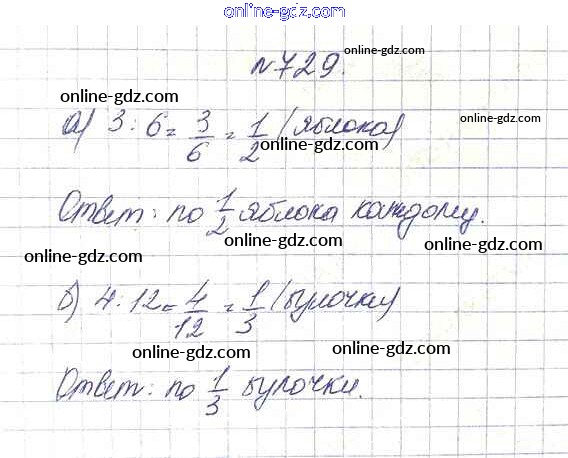 online-gdz.com
№729.
online-gdz.com
online-gdz.com
online-gdz.com
а) 3:6=3/6=1/2 (яблока)
online-gdz.com
Ответ: по 1/2 яблока каждому.
online-gdz.com
online-gdz.com
online-gdz.com
б) 4:12=4/12=1/3 (булочки)
online-gdz.com
online-gdz.com
Ответ: по 1/3 булочки.
online-gdz.com